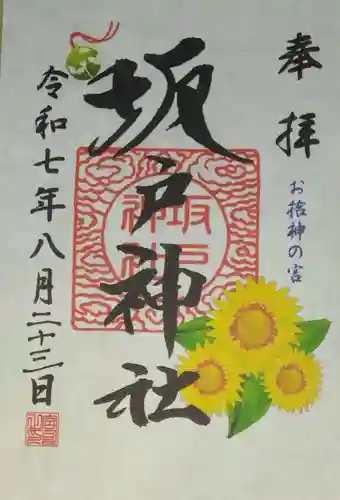 奉拝
お捨神の宮
坂戸神社
坂戸神社
令和七年八月二十三日